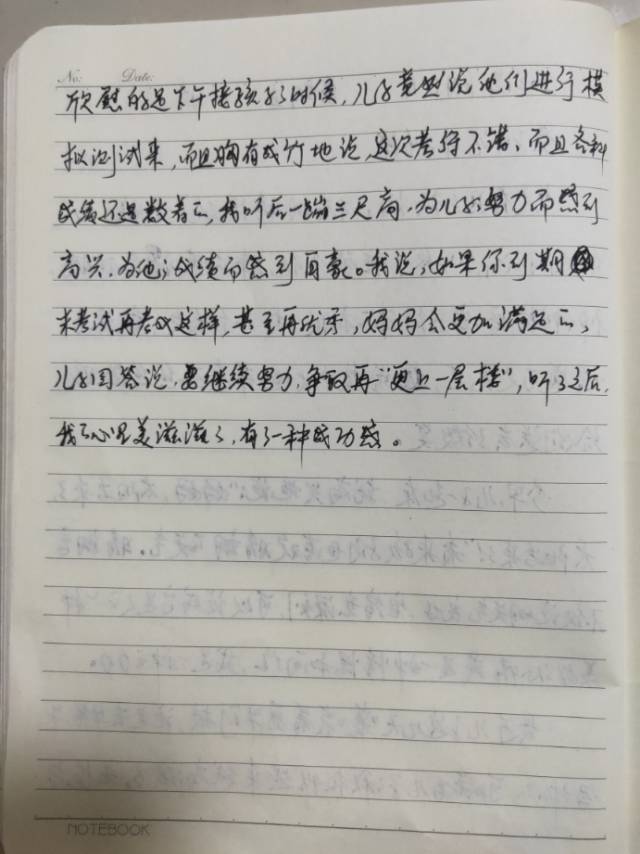 No:  Date:
欣慰的是下午接孩子的时候，儿子竟然说他们进行模
拟测试来，而且胸有成竹地说，这次考得不错、而且各科
成绩还是数着的，我听后一蹦三尺高，为儿子的努力而感到
高兴，为他的成绩而感到自豪。我说，如果你到期
末考试再考成这样，甚至再优秀，妈妈会更加满足的，
儿子回答说，要继续努力，争取再“更上一层楼”，听了之后，
我的心里美滋滋的，有了一种成功感。
NOTEBOOK